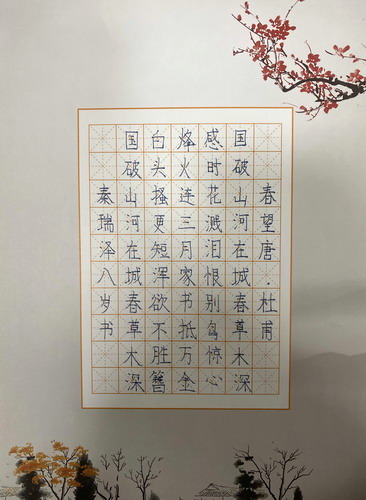 春望唐·杜甫
国破山河在城春草木深
感时花溅泪恨别鸟惊心
烽火连三月家书抵万金
白头搔更短浑欲不胜簪
国破山河在城春草木深
秦瑞泽八岁书